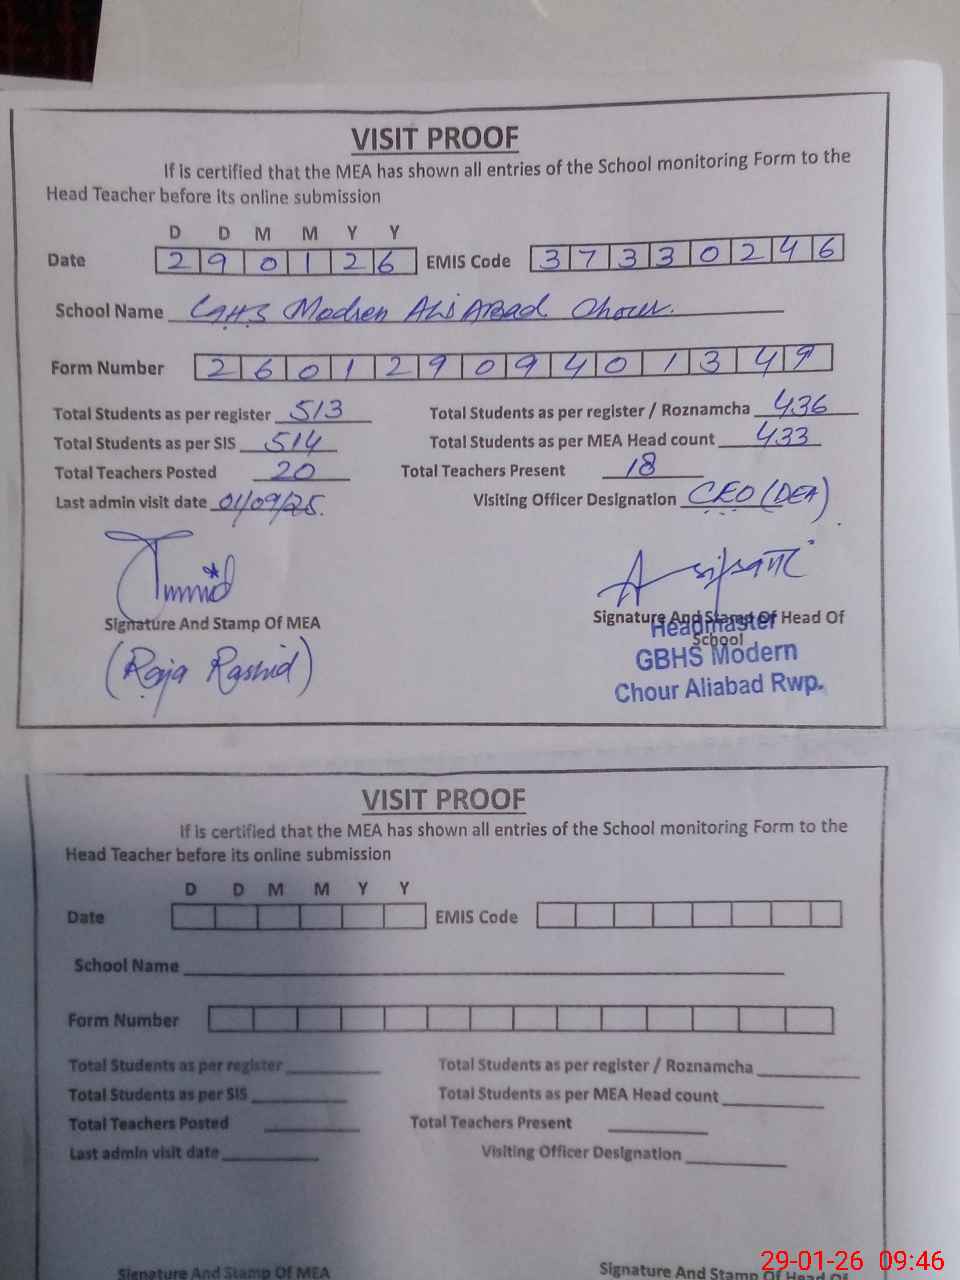 VISIT PROOF
If is certified that the MEA has shown all entries of the School monitoring Form to the
Head Teacher before its online submission
D D M M Y Y
Date 2 9 0 1 2 6 EMIS Code 3 7 3 3 0 2 4 6
School Name GHS Modren Ali Abad Chour.
Form Number 2 6 0 1 2 9 0 9 4 0 1 3 4 9
Total Students as per register 513 Total Students as per register / Roznamcha 436
Total Students as per SIS 514 Total Students as per MEA Head count 433
Total Teachers Posted 20 Total Teachers Present 18
Last admin visit date 01/09/25. Visiting Officer Designation CEO (DEA)
Signature And Stamp Of MEA Signature And Stamp Of Head Of
School
(Raja Rashid)
Headmaster
GBHS Modern
Chour Aliabad Rwp.
VISIT PROOF
If is certified that the MEA has shown all entries of the School monitoring Form to the
Head Teacher before its online submission
D D M M Y Y
Date EMIS Code
School Name
Form Number
Total Students as per register Total Students as per register / Roznamcha
Total Students as per SIS Total Students as per MEA Head count
Total Teachers Posted Total Teachers Present
Last admin visit date Visiting Officer Designation
Signature And Stamp Of MEA Signature And Stamp Of Head Of
29-01-26 09:46